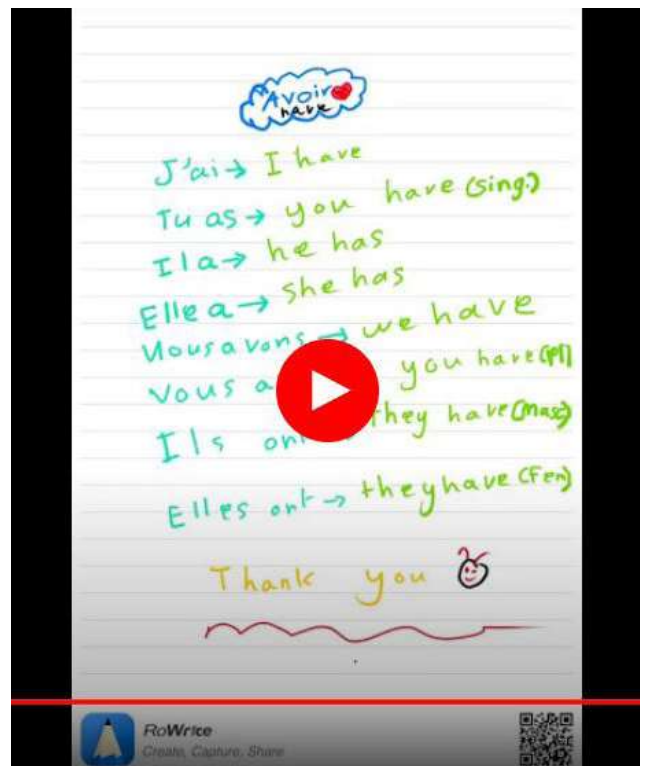 Avoir
have
J'ai → I have
Tu as → you have (sing.)
Il a → he has
Elle a → she has
Nous avons → we have
Vous a you have (pl)
Ils ont they have (masc)
Elles ont → they have (Fem)
Thank you
RoWrite
Create, Capture, Share